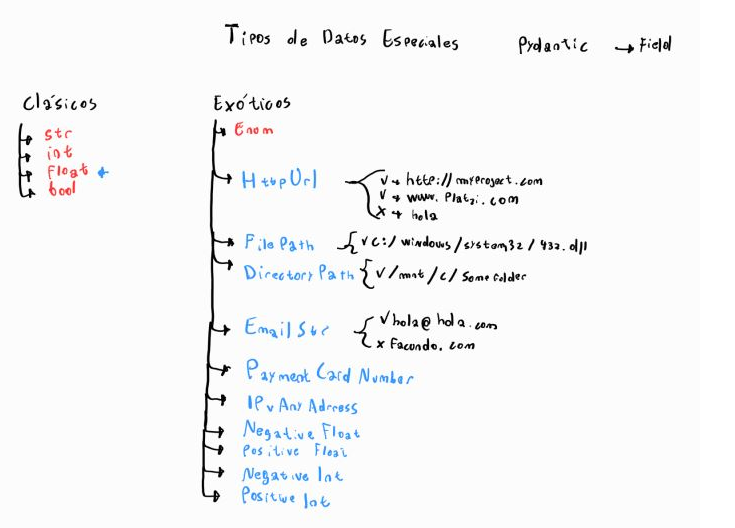 Tipos de Datos Especiales Pydantic → Field
Clásicos
str
int
Float +
bool
Exóticos
Enom
HttpUrl
√ → http://myproject.com
√ → www.Platzi.com
x → hola
File Path { √ c:/windows/system32/432.dll
Directory Path { √/mnt/c/some folder
Email Str
√ hola@hola.com
x Facundo.com
Payment Card Number
IPv Any Adrress
Negative Float
Positive Float
Negative Int
Positive Int